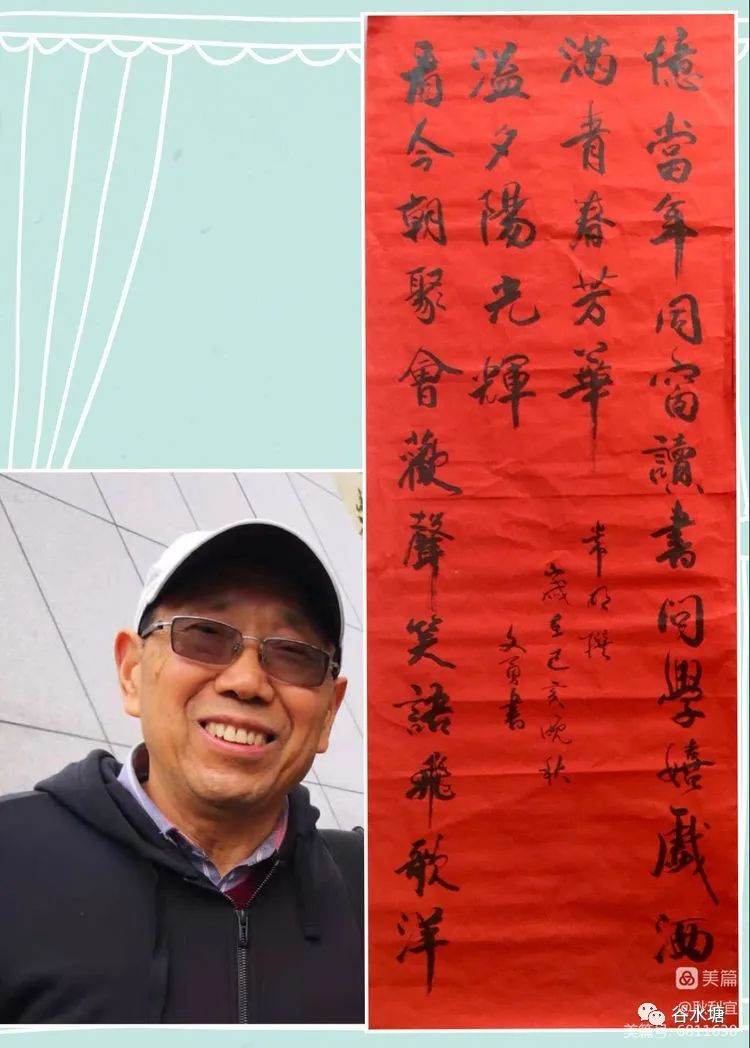 憶當年同窗讀書問學嬉戲洒
滿青春芳華
看今朝聚會歡聲笑語飛歌洋
溢夕陽光輝
常明撰
歲在己亥晚秋
文勇書
美篇
谷水塘